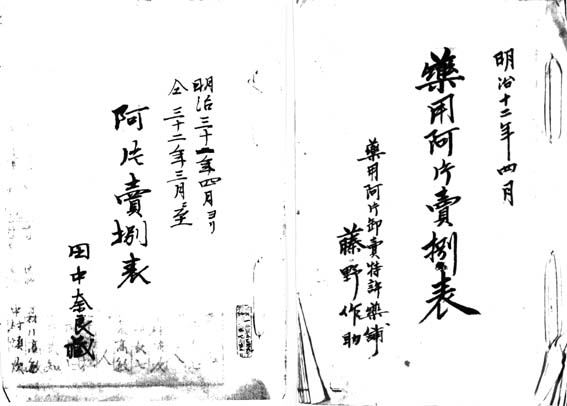 明治十二年四月
藥用阿片賣捌表
藥用阿片卸賣特許藥舗
藤野作助
明治三十一年四月ヨリ
仝三十二年三月ニ至
阿片賣捌表
田中奈良藏